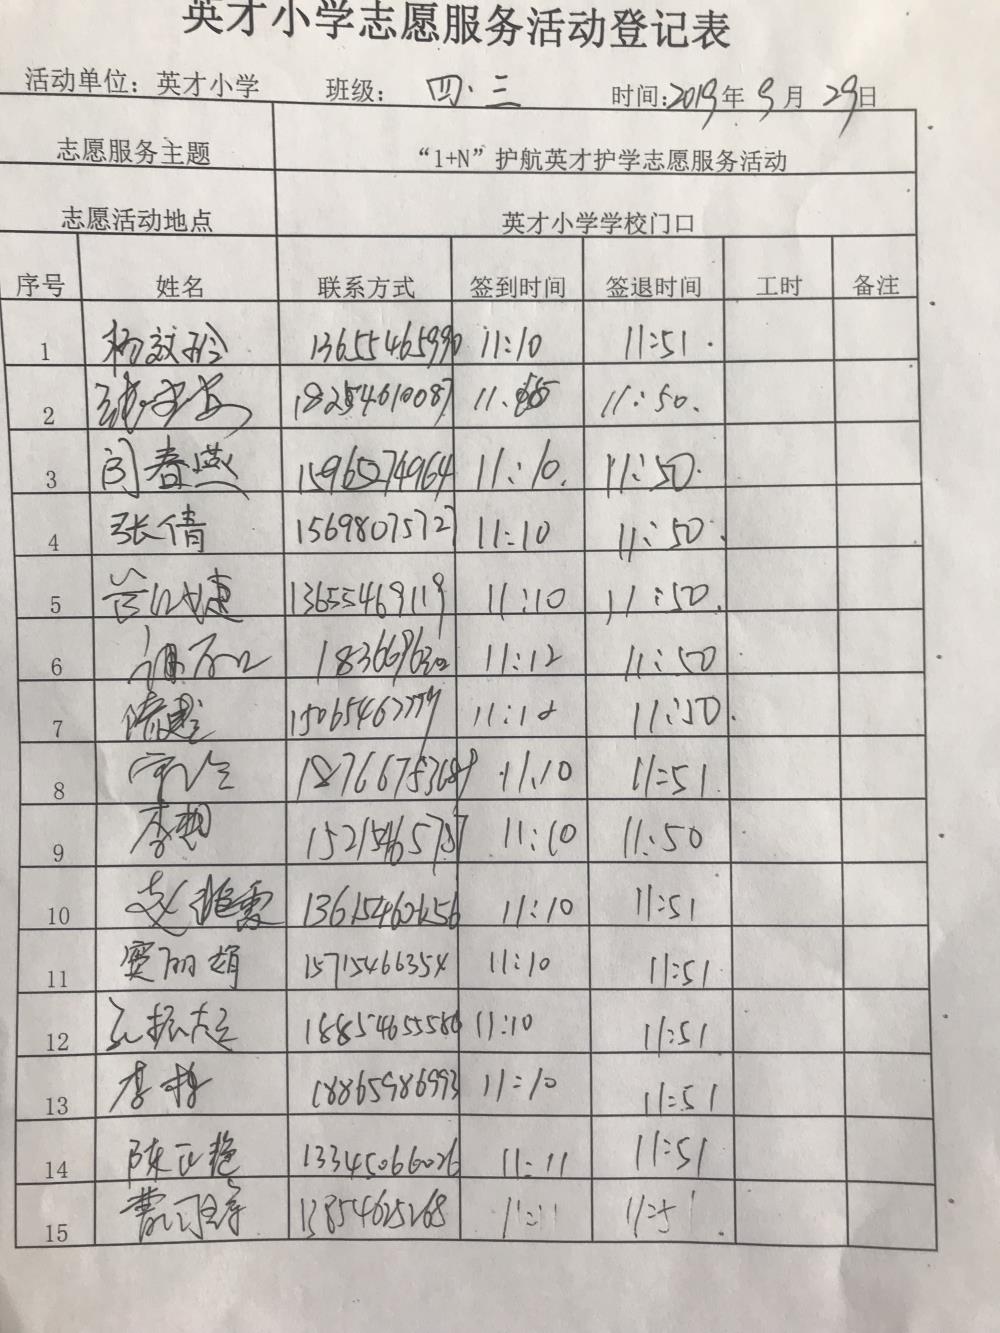 英才小学志愿服务活动登记表
活动单位：英才小学 班级：四.三 时间:2019年9月29日
志愿服务主题 “1+N”护航英才护学志愿服务活动
志愿活动地点 英才小学学校门口
序号 姓名 联系方式 签到时间 签退时间 工时 备注
1 13655465990 11:10 11:51.
2 18254610087 11:50.
3 闫春燕 15965274964 11:10. 11:50.
4 张倩 15698075727 11:10 11:50.
5 13655469119 11:10 11:50.
6 11:12 11:50
7 11:50.
8 11.10 11:51
9 11:10 11:50
10 11:10 11:51
11 贾丽娟 15715466354 11:10 11:51
12 18854655586 11:10 11:51
13 18865986993 11:10 11:51
14 13345066026 11:11 11:51
15 13854625268 11:11 11:51